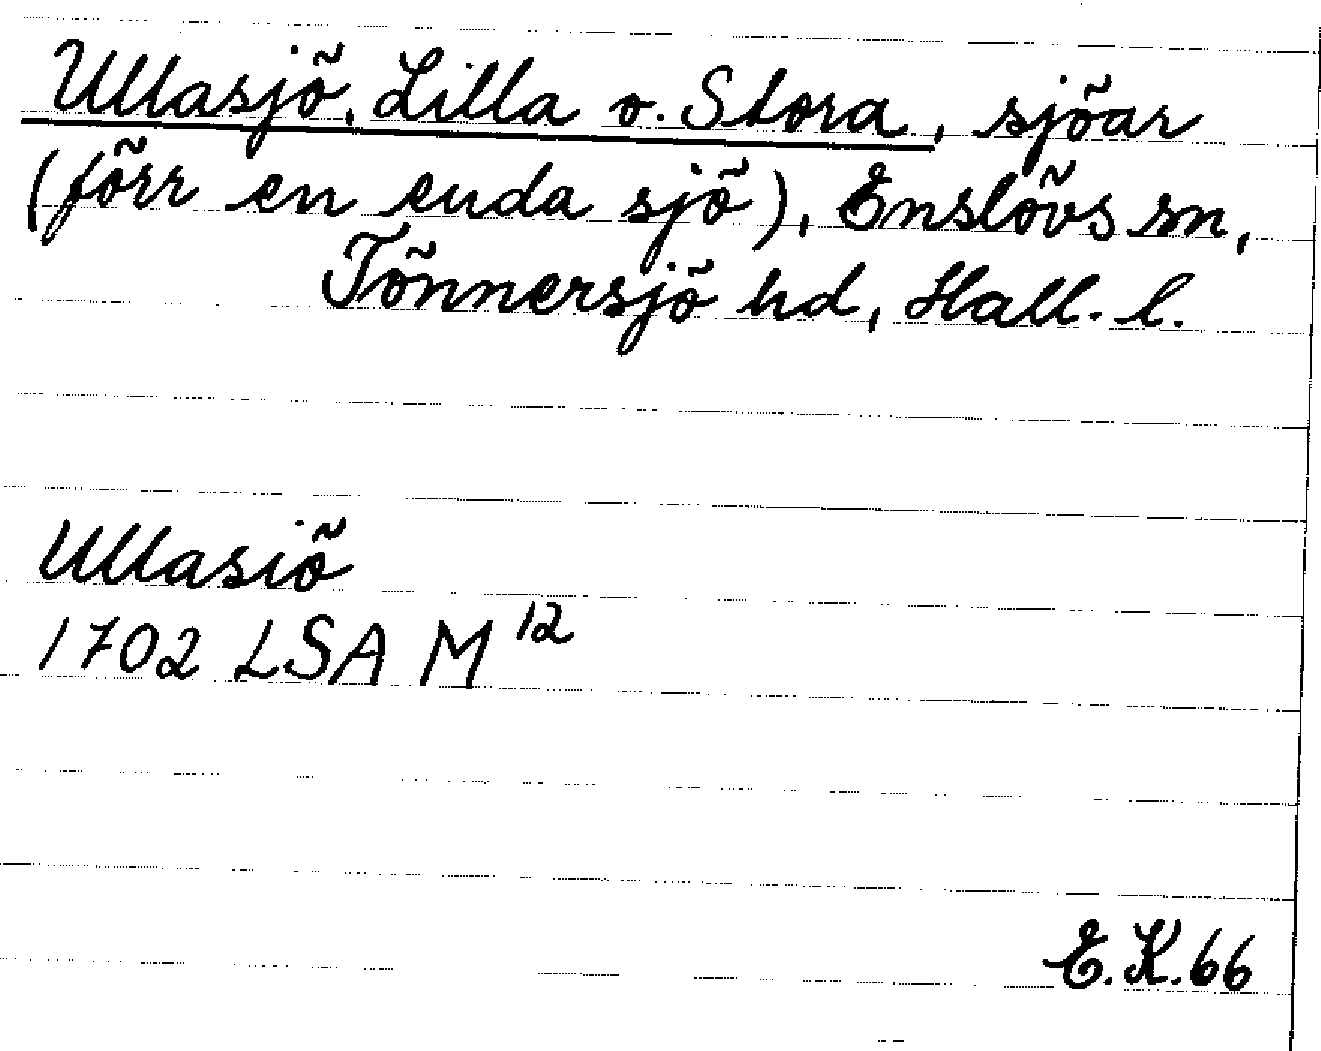 Ullasjö, Lilla o. Stora, sjöar
(förr en enda sjö), Enslövs sn,
Tönnersjö hd, Hall. l.
Ullasiö
1702 LSA M 12
E.K. 66